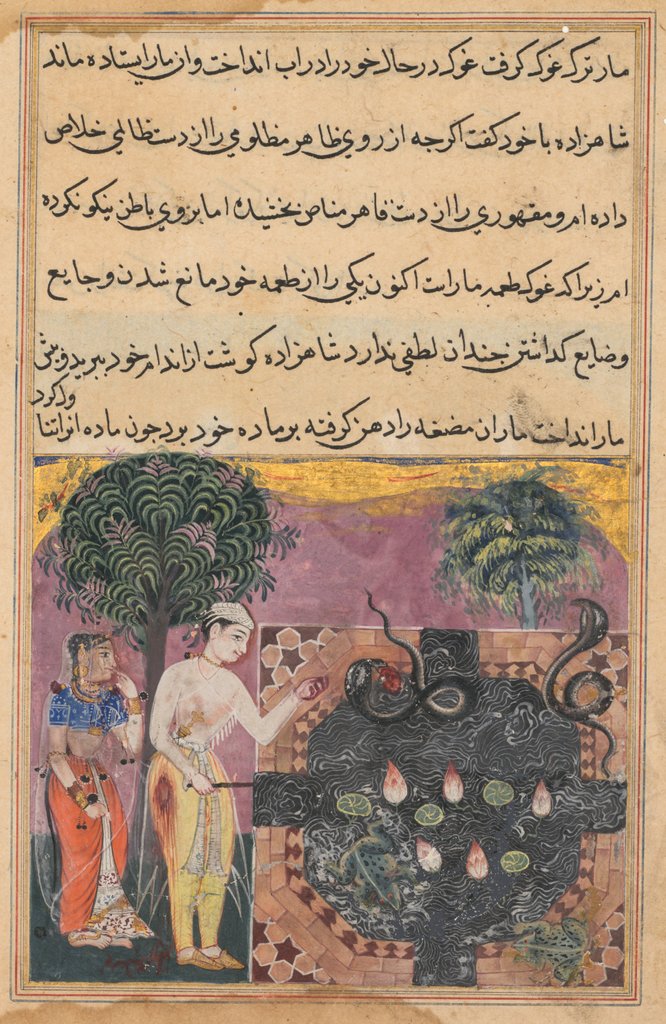 مار ترک غوک گرفت غوک در حال خود را در اب انداخت و ان مار ایستاده ماند
شاهزاده با خود کفت اکرجه از روي ظاهر مظلومي را از دست ظالمي خلاص
داده ام و مقهوري را از دست قاهر مناص بخشیده اما بروي باطن نیکو نکرده
ام زیرا که غوک طعمه مار است اکنون یکي را از طعمه خود مانع شدن و جایع
و ضایع کداشتن جندان لطفي ندارد شاهزاده کوشت از اندام خود ببرید و پیش
مار انداخت ماران مضغه را دهن کرفته بر ماده خود برد جون ماده انرا